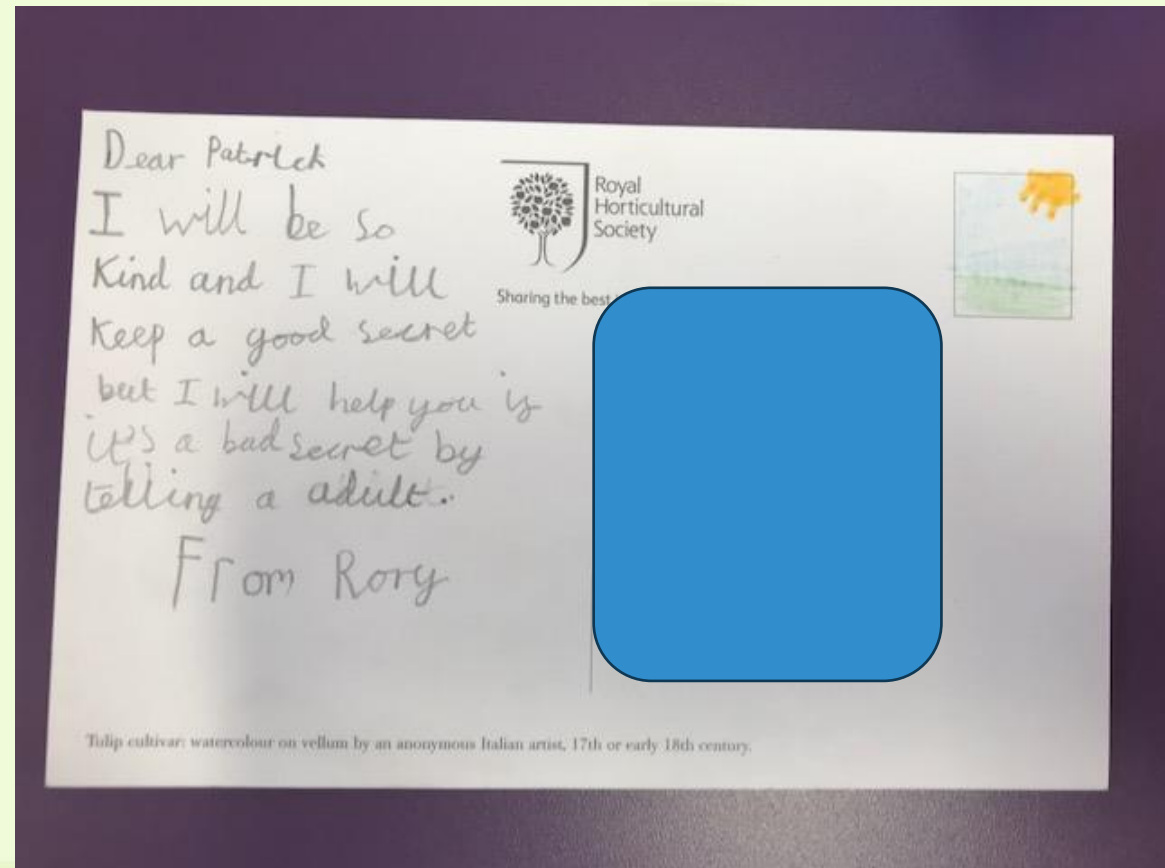 Dear Patrick
I will be so
Kind and I will
Keep a good secret
but I will help you if
it's a bad secret by
telling a adult.
From Rory
Royal
Horticultural
Society
Sharing the best
Tulip cultivar: watercolour on vellum by an anonymous Italian artist, 17th or early 18th century.